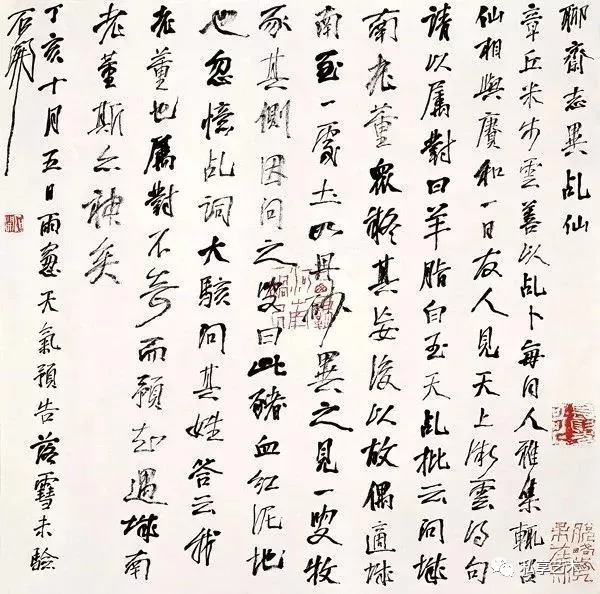 聊齋志異乩仙
章丘米步雲善以乩卜每同人雅集輒召
仙相與賡和一日友人見天上微雲得句
請以屬對曰羊脂白玉天乩批云問城
南老董眾疑其妄後以故偶適城
南至一處土如丹砂異之見一叟牧
豕其側因問之叟曰此豬血紅泥地
也忽憶乩詞大駭問其姓答云我
老董也屬對不奇而預知遇城南
老董斯亦神矣
丁亥十月五日雨天氣預告落雪未驗
石開
私享艺